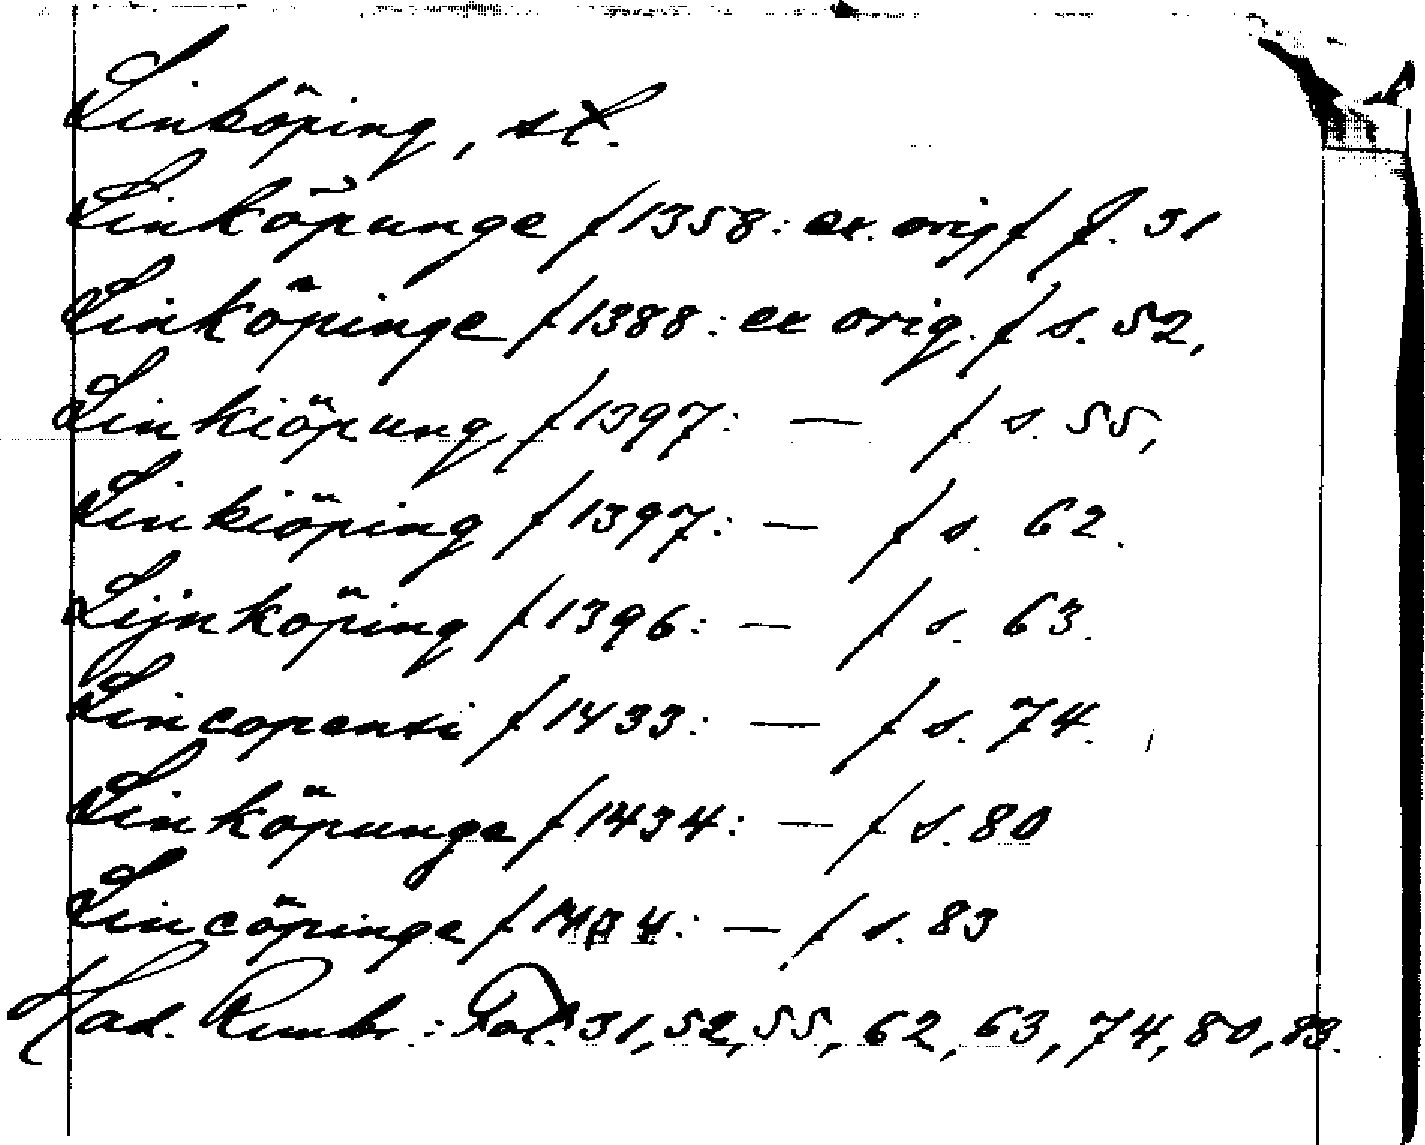 Linköping, st.
Linköpunge /1358: ex. orig/ s. 31
Linköpinge /1388: ex orig. / s. 52,
Linkiöpung /1397: — / s. 55,
Linkiöping /1397: — / s. 62.
Lijnköping /1396: — / s. 63.
Lincopensi /1433: — / s. 74.
Linköpunge /1434: — / s. 80
Lincöpinge / — / s. 83
Had. : 31, 52, 55, 62, 63, 74, 80, 83.